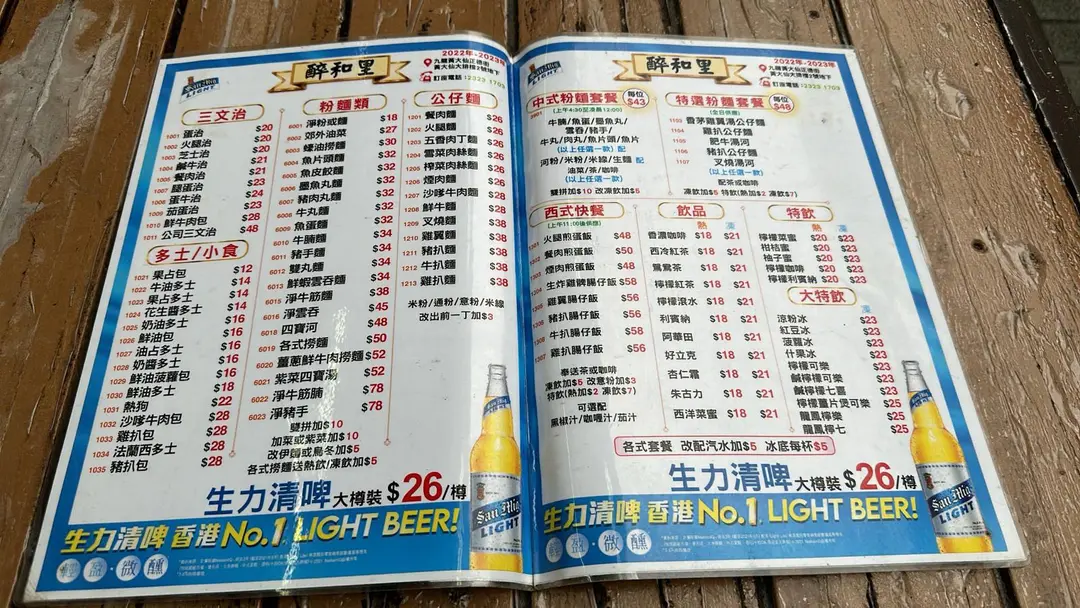 San Mig
LIGHT
醉和里
2022年-2023年
九龍黃大仙正德街
黃大仙大排檔2號地下
訂座電話：2323 1703
三文治
1001 蛋治 $20
1002 火腿治 $20
1003 芝士治 $20
1004 鹹牛治 $21
1005 餐肉治 $21
1006 腿蛋治 $23
1007 蛋牛治 $24
1008 茄蛋治 $23
1009 鮮牛肉包 $28
1010 公司三文治 $48
1011
多士/小食
1021 果占包 $12
1022 牛油多士 $14
1023 果占多士 $14
1024 花生醬多士 $14
1025 奶油多士 $16
1026 鮮油包 $16
1027 油占多士 $16
1028 奶醬多士 $16
1029 鮮油菠蘿包 $16
1030 鮮油多士 $18
1031 熱狗 $22
1032 沙嗲牛肉包 $28
1033 雞扒包 $28
1034 法蘭西多士 $28
1035 豬扒包 $28
粉麵類
6001 淨粉或麵 $18
6002 郊外油菜 $27
6003 蠔油撈麵 $30
6004 魚片頭麵 $32
6005 魚皮餃麵 $32
6006 墨魚丸麵 $32
6007 豬肉丸麵 $32
6008 牛丸麵 $32
6009 魚蛋麵 $32
6010 牛腩麵 $34
6011 豬手麵 $34
6012 雙丸麵 $34
6013 鮮蝦雲吞麵 $34
6015 淨牛筋麵 $38
6016 淨雲吞 $45
6018 四寶河 $48
6019 各式撈麵 $50
6020 薑蔥鮮牛肉撈麵 $52
6021 紫菜四寶湯 $52
6022 淨牛筋腩 $78
6023 淨豬手 $78
雙拼加$10
加菜或紫菜加$10
改伊麵或烏冬加$5
各式撈麵送熱飲/凍飲加$5
公仔麵
1201 餐肉麵 $26
1202 火腿麵 $26
1203 五香肉丁麵 $26
1204 雪菜肉絲麵 $26
1205 榨菜肉絲麵 $26
1206 煙肉麵 $26
1207 沙嗲牛肉麵 $28
1208 鮮牛麵 $28
1209 叉燒麵 $38
1210 雞翼麵 $38
1211 豬扒麵 $38
1212 牛扒麵 $38
1213 雞扒麵 $38
米粉/通粉/意粉/米線
改出前一丁加$3
生力清啤 大樽裝 $26/樽
生力清啤 香港No.1 LIGHT BEER!
輕盈·微醺
San Mig
LIGHT
醉和里
2022年-2023年
九龍黃大仙正德街
黃大仙大排檔2號地下
訂座電話：2323 1703
中式粉麵套餐 每位 $43
(上午4:30至凌晨12:00)
牛腩/魚蛋/墨魚丸/
雲吞/豬手/
牛丸/肉丸/魚片頭/魚片
(以上任選一款) 配
河粉/米粉/米線/生麵 配
油菜/茶/咖啡
(以上任選一款)
雙拼加$10 改凍飲加$5
特選粉麵套餐 每位 $48
(全日供應)
1103 香茅雞翼湯公仔麵
1104 雞扒公仔麵
1105 肥牛湯河
1106 豬扒公仔麵
1107 叉燒湯河
(以上任選一款)
配茶或咖啡
凍飲加$5 特飲(熱加$2 凍飲$7)
西式快餐
(上午11:00後供應)
1301 火腿煎蛋飯 $48
1302 餐肉煎蛋飯 $50
1303 煙肉煎蛋飯 $48
1304 生炸雞髀腸仔飯 $58
1305 雞翼腸仔飯 $56
1306 豬扒腸仔飯 $56
1308 牛扒腸仔飯 $58
1307 雞扒腸仔飯 $56
奉送茶或咖啡
凍飲加$5 改意粉加$3
特飲(熱加$2 凍飲$7)
可選配
黑椒汁/咖喱汁/茄汁
飲品
熱 凍
香濃咖啡 $18 $21
西冷紅茶 $18 $21
鴛鴦茶 $18 $21
檸檬紅茶 $18 $21
檸檬滾水 $18 $21
利賓納 $18 $21
阿華田 $18 $21
好立克 $18 $21
杏仁霜 $18 $21
朱古力 $18 $21
西洋菜蜜 $18 $21
特飲
熱 凍
檸檬菜蜜 $20 $23
柑桔蜜 $20 $23
柚子蜜 $20 $23
檸檬咖啡 $20 $23
檸檬利賓納 $20 $23
大特飲
凍
涼粉冰 $23
紅豆冰 $23
菠蘿冰 $23
什果冰 $23
檸檬可樂 $23
鹹檸檬可樂 $23
鹹檸檬七喜 $23
檸檬薑片煲可樂 $25
龍鳳檸樂 $25
龍鳳檸七 $25
各式套餐 改配汽水加$5 冰底每杯$5
生力清啤 大樽裝 $26/樽
生力清啤 香港No.1 LIGHT BEER!
輕盈·微醺
San Mig
LIGHT